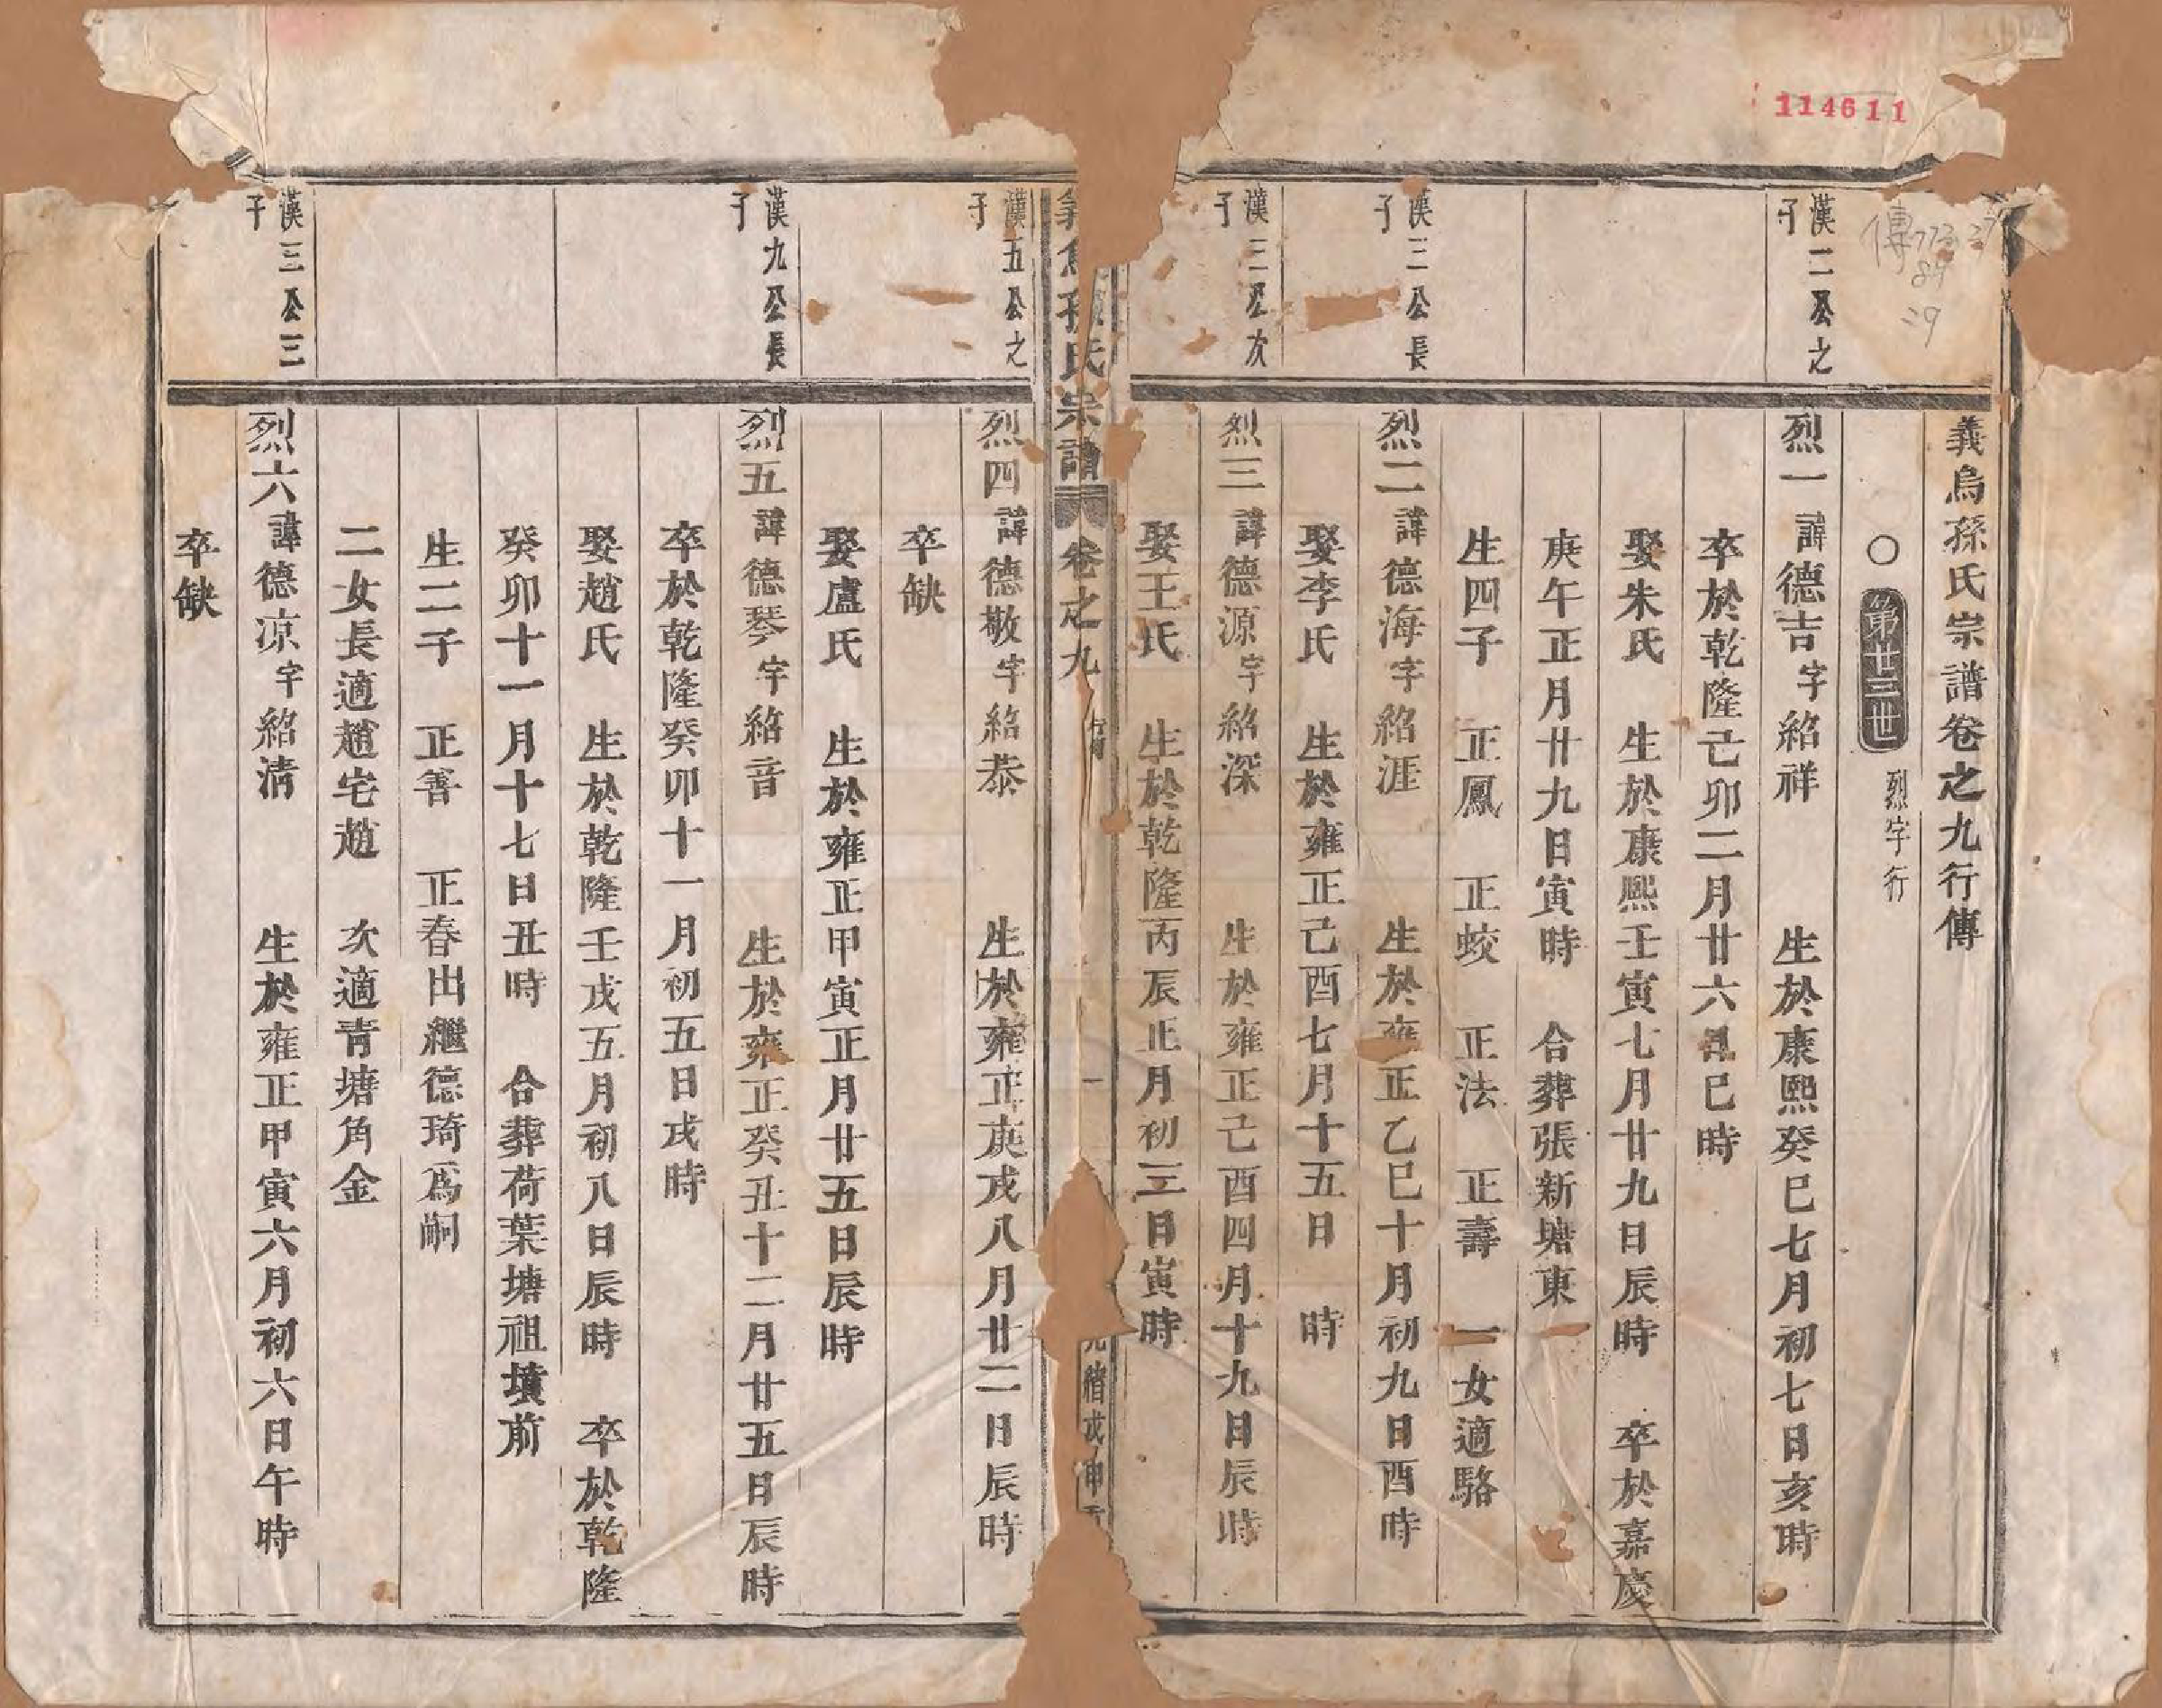 114611
傳773.27
84
29
義烏孫氏宗譜卷之九行傳
○第廿三世 烈字行
漢二公之子
烈一諱德吉字紹祥 生於康熙癸巳七月初七日亥時
卒於乾隆己卯二月廿六日巳時
娶朱氏 生於康熙壬寅七月廿九日辰時 卒於嘉慶
庚午正月廿九日寅時 合葬張新塘東
生四子 正鳳 正蛟 正法 正壽 一女適駱
漢三公長子
烈二諱德海字紹涯 生於雍正乙巳十月初九日酉時
娶李氏 生於雍正己酉七月十五日 時
漢三公次子
烈三諱德源字紹深 生於雍正己酉四月十九日辰時
娶王氏 生於乾隆丙辰正月初三日寅時
義烏孫氏宗譜 卷之九 行 一 光緒戊申
漢五公之子
烈四諱德敬字紹恭 生於雍正庚戌八月廿二日辰時
卒缺
娶盧氏 生於雍正甲寅正月廿五日辰時
漢九公長子
烈五諱德琴字紹音 生於雍正癸丑十二月廿五日辰時
卒於乾隆癸卯十一月初五日戌時
娶趙氏 生於乾隆壬戌五月初八日辰時 卒於乾隆
癸卯十一月十七日丑時 合葬荷葉塘祖墳前
生二子 正善 正春出繼德琦爲嗣
二女長適趙宅趙 次適青塘角金
漢三公三子
烈六諱德凉字紹清 生於雍正甲寅六月初六日午時
卒缺